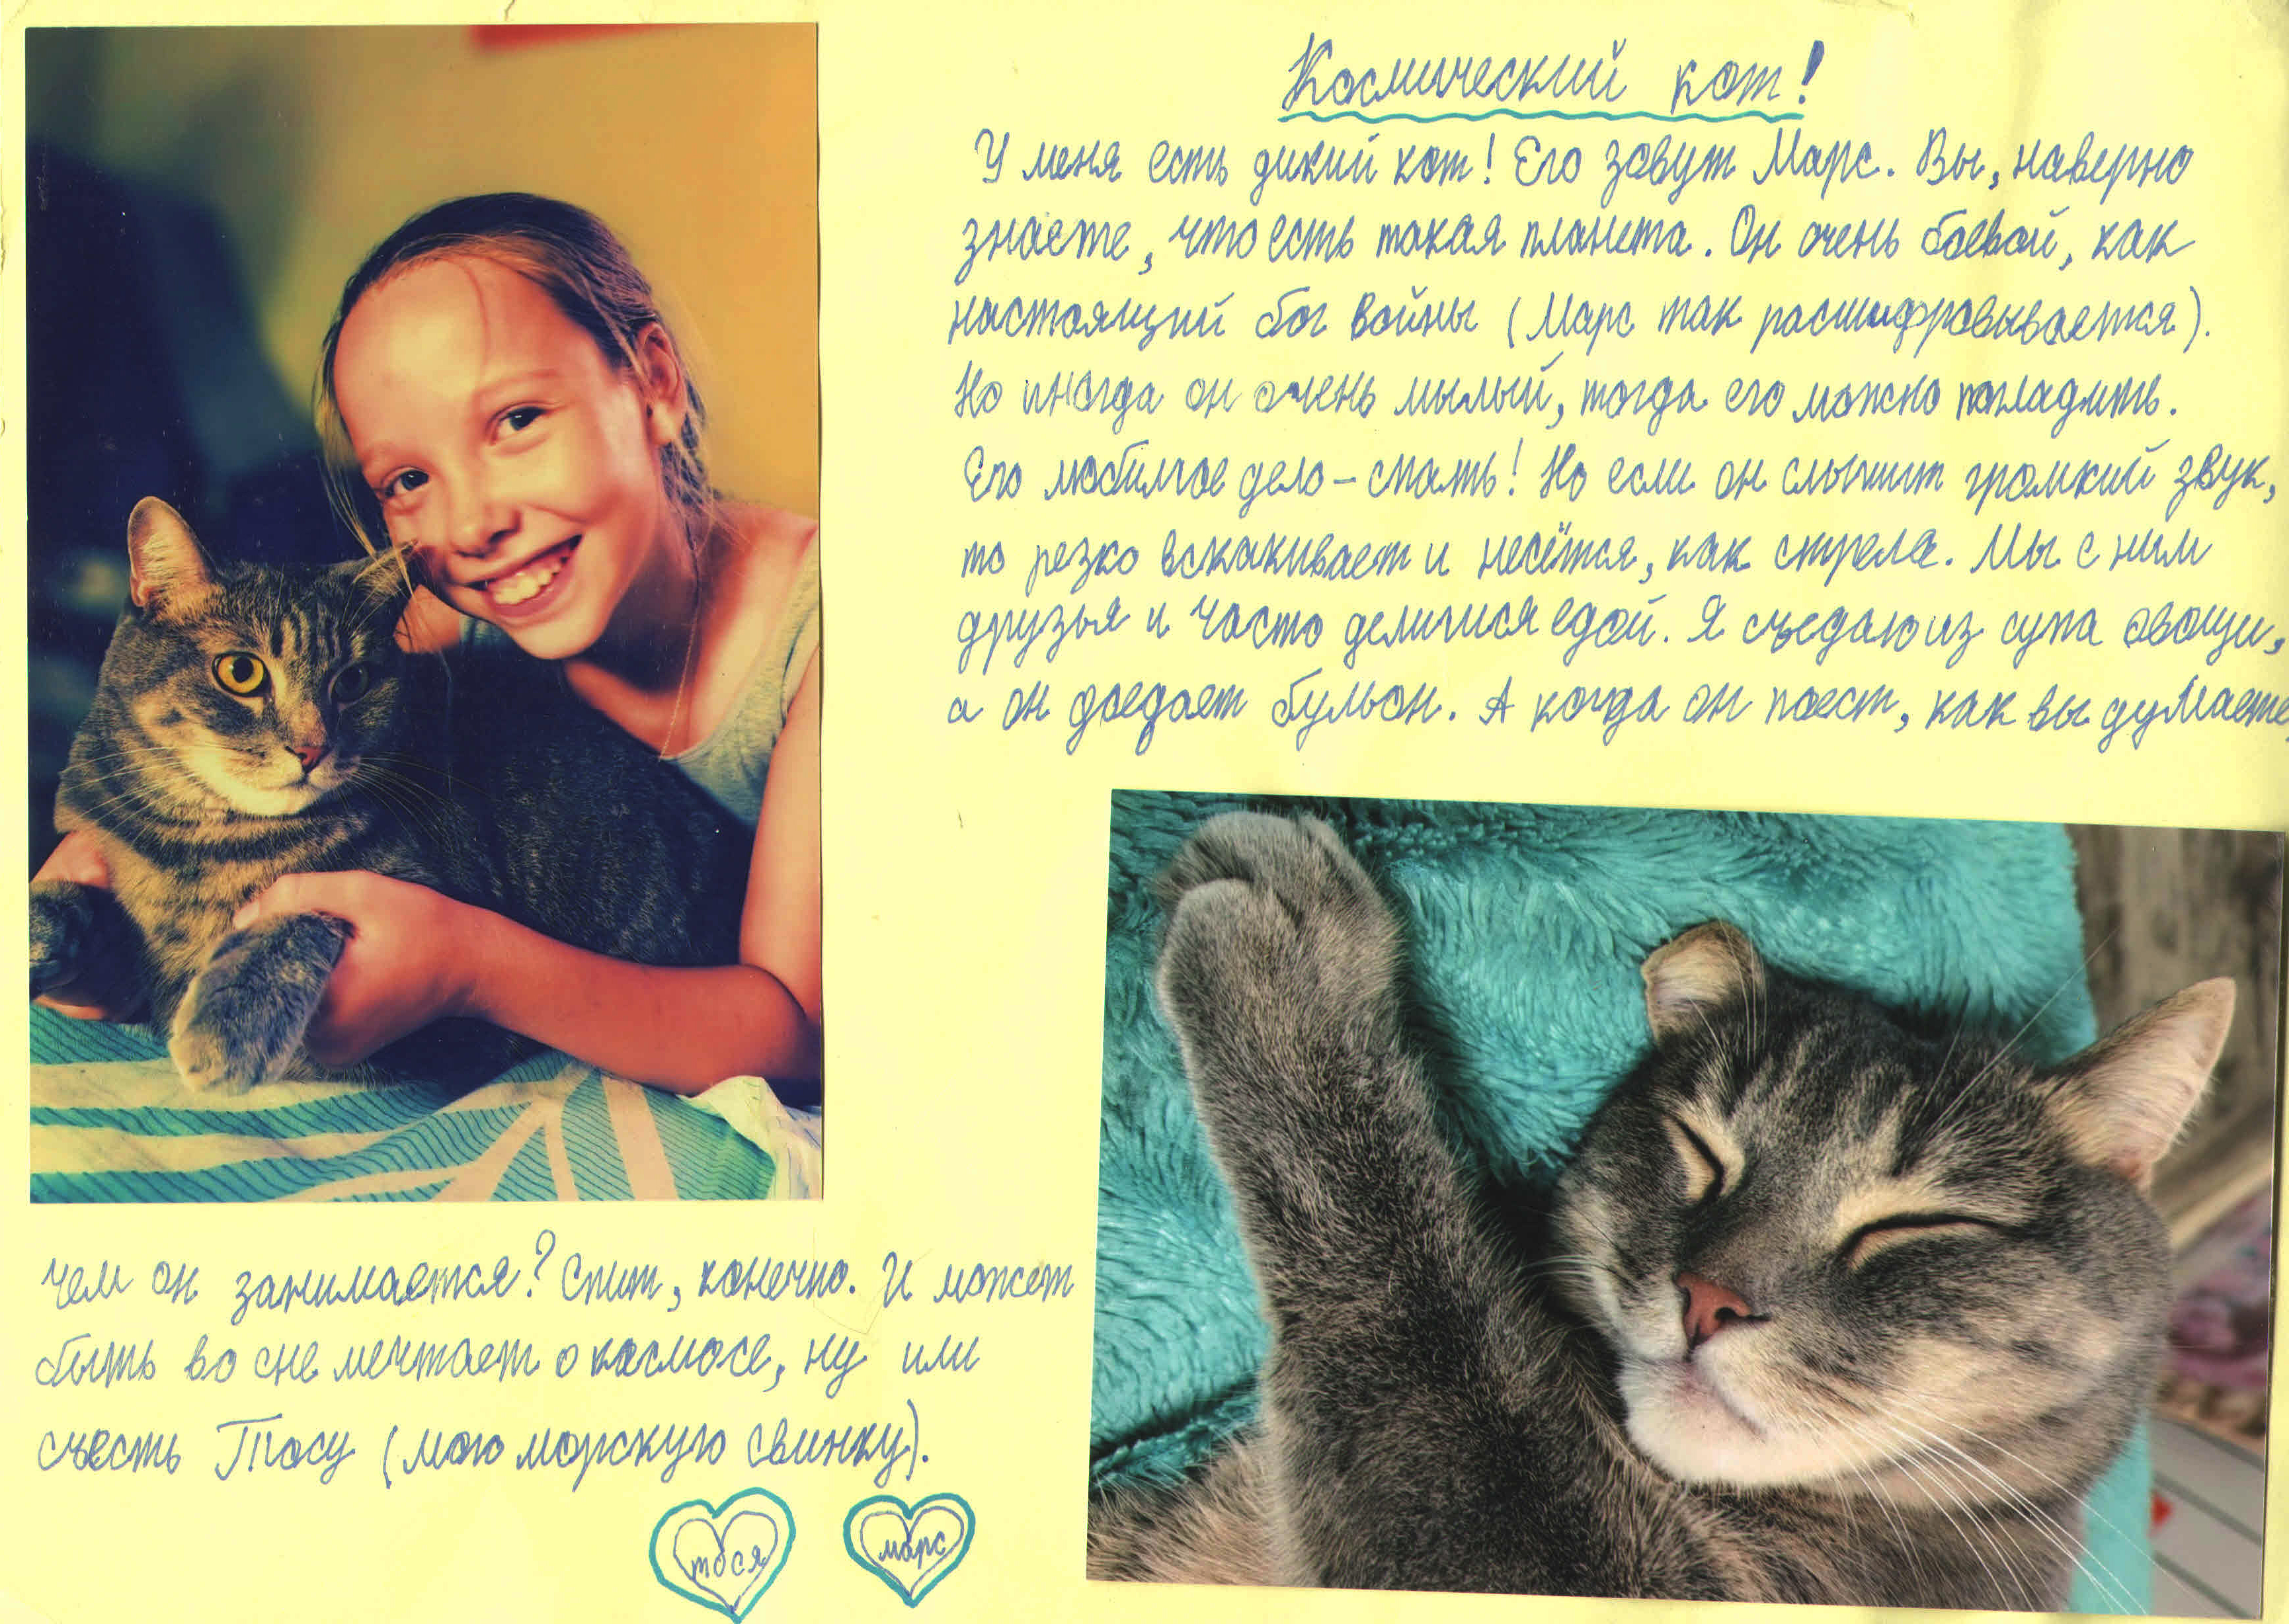 Космический кот!
У меня есть дикий кот! Его зовут Марс. Вы, наверно
знаете, что есть такая планета. Он очень боевой, как
настоящий бог войны (Марс так расшифровывается).
Но иногда он очень милый, тогда его можно погладить.
Его любимое дело – спать! Но если он слышит громкий звук,
то резко вскакивает и несётся, как стрела. Мы с ним
друзья и часто делимся едой. Я съедаю из супа овощи,
а он доедает бульон. А когда он поест, как вы думаете,
чем он занимается? Спит, конечно. И может
быть во сне мечтает о космосе, ну или
съесть Тосу (мою морскую свинку).
тося
марс